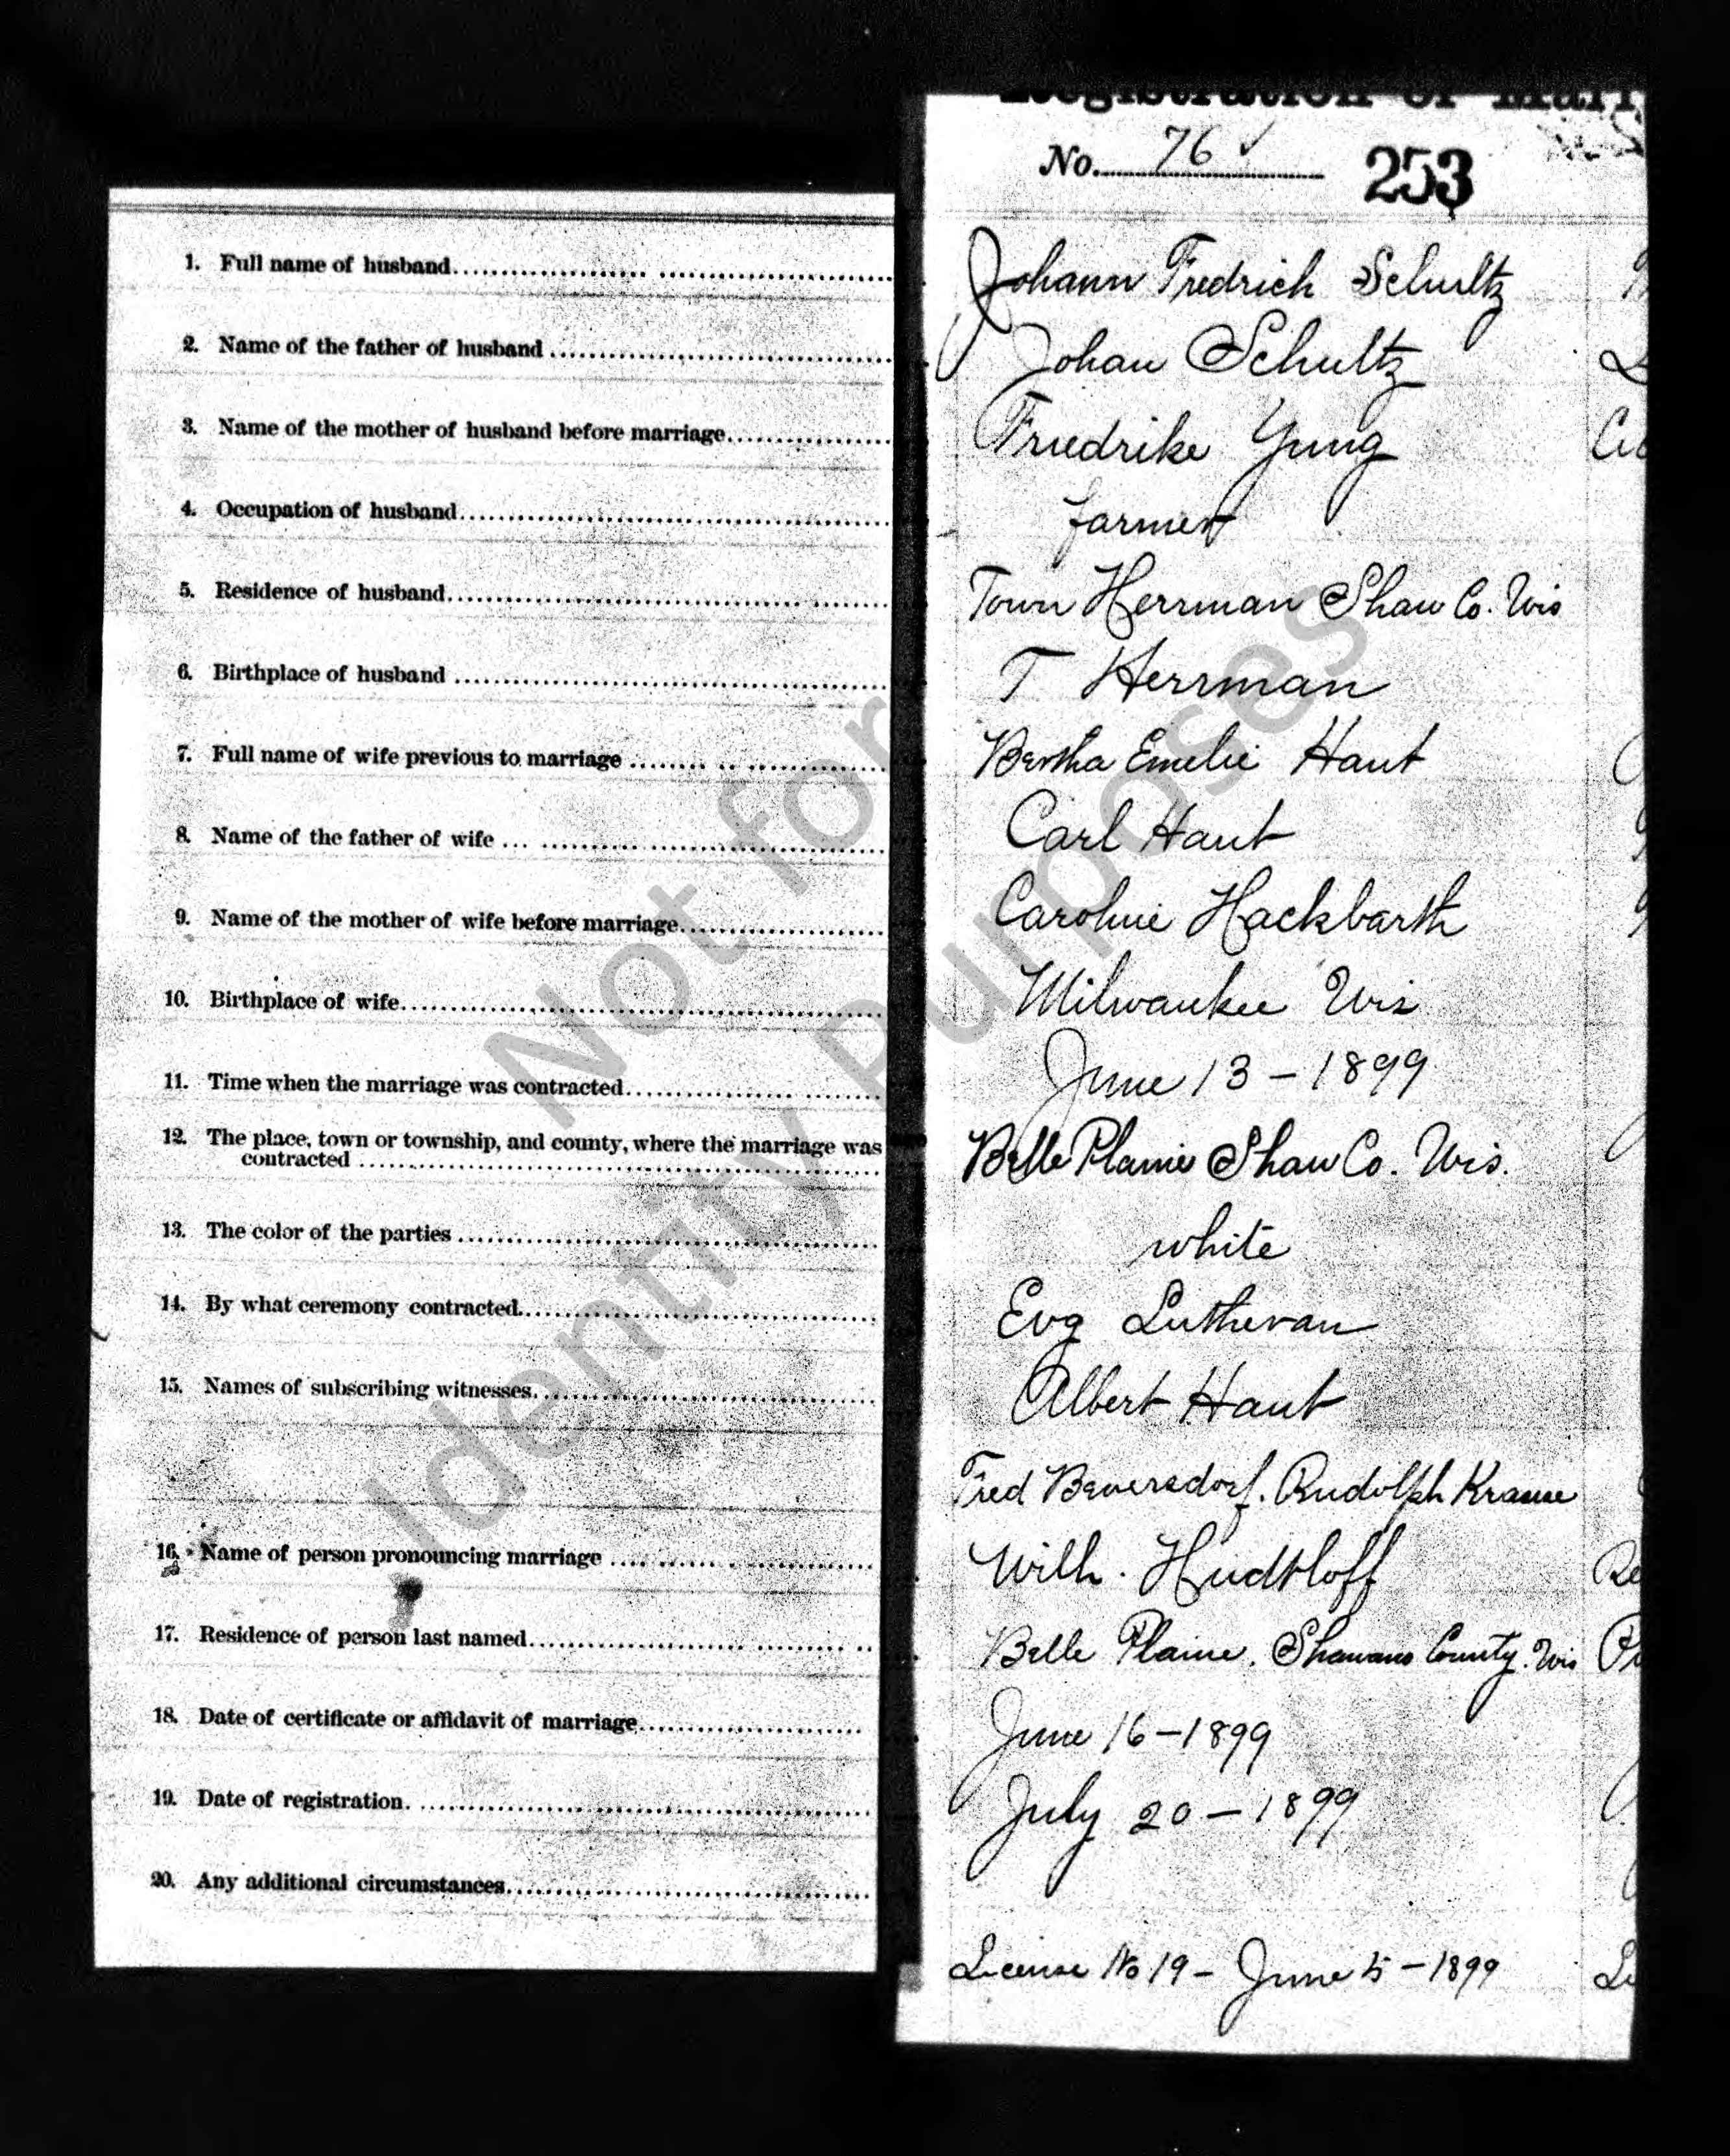 Registration of Marr
No. 76 ✓ 253
1. Full name of husband Johann Fredrich Schultz
2. Name of the father of husband Johan Schultz
3. Name of the mother of husband before marriage Friedrike Yung
4. Occupation of husband farmer
5. Residence of husband Town Herrman Shaw Co. Wis
6. Birthplace of husband T Herrman
7. Full name of wife previous to marriage Bertha Emelie Haut
8. Name of the father of wife Carl Haut
9. Name of the mother of wife before marriage Caroline Hackbarth
10. Birthplace of wife Milwaukee Wis
11. Time when the marriage was contracted June 13 - 1899
12. The place, town or township, and county, where the marriage was
contracted Belle Plaine Shaw Co. Wis.
13. The color of the parties white
14. By what ceremony contracted Evg Lutheran
15. Names of subscribing witnesses Albert Haut
Fred Beversdorf. Rudolph Krause
16. Name of person pronouncing marriage Wilh. Hudtloff
17. Residence of person last named Belle Plaine. Shawano County. Wis
18. Date of certificate or affidavit of marriage June 16 - 1899
19. Date of registration July 20 - 1899
20. Any additional circumstances
License No 19 - June 5 - 1899
Not for
Identity Purposes